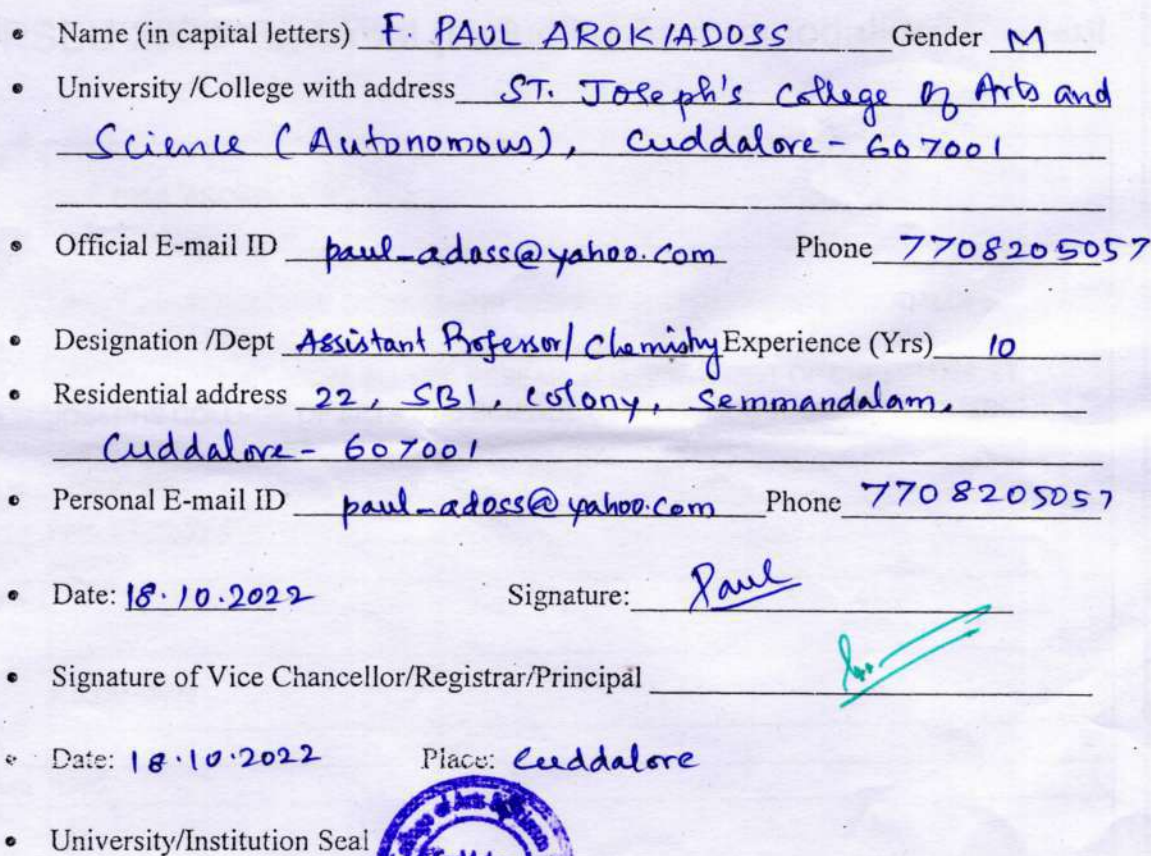 • Name (in capital letters) F. PAUL AROKIADOSS Gender M
• University /College with address ST. Joseph's College of Arts and
Science (Autonomous), Cuddalore - 607001
• Official E-mail ID paul_adoss@yahoo.com Phone 7708205057
• Designation /Dept Assistant Professor/ Chemistry Experience (Yrs) 10
• Residential address 22, SBI, Colony, Semmandalam,
Cuddalore - 607001
• Personal E-mail ID paul_adoss@yahoo.com Phone 7708205057
• Date: 18.10.2022 Signature: Paul
• Signature of Vice Chancellor/Registrar/Principal
• Date: 18.10.2022 Place: Cuddalore
• University/Institution Seal